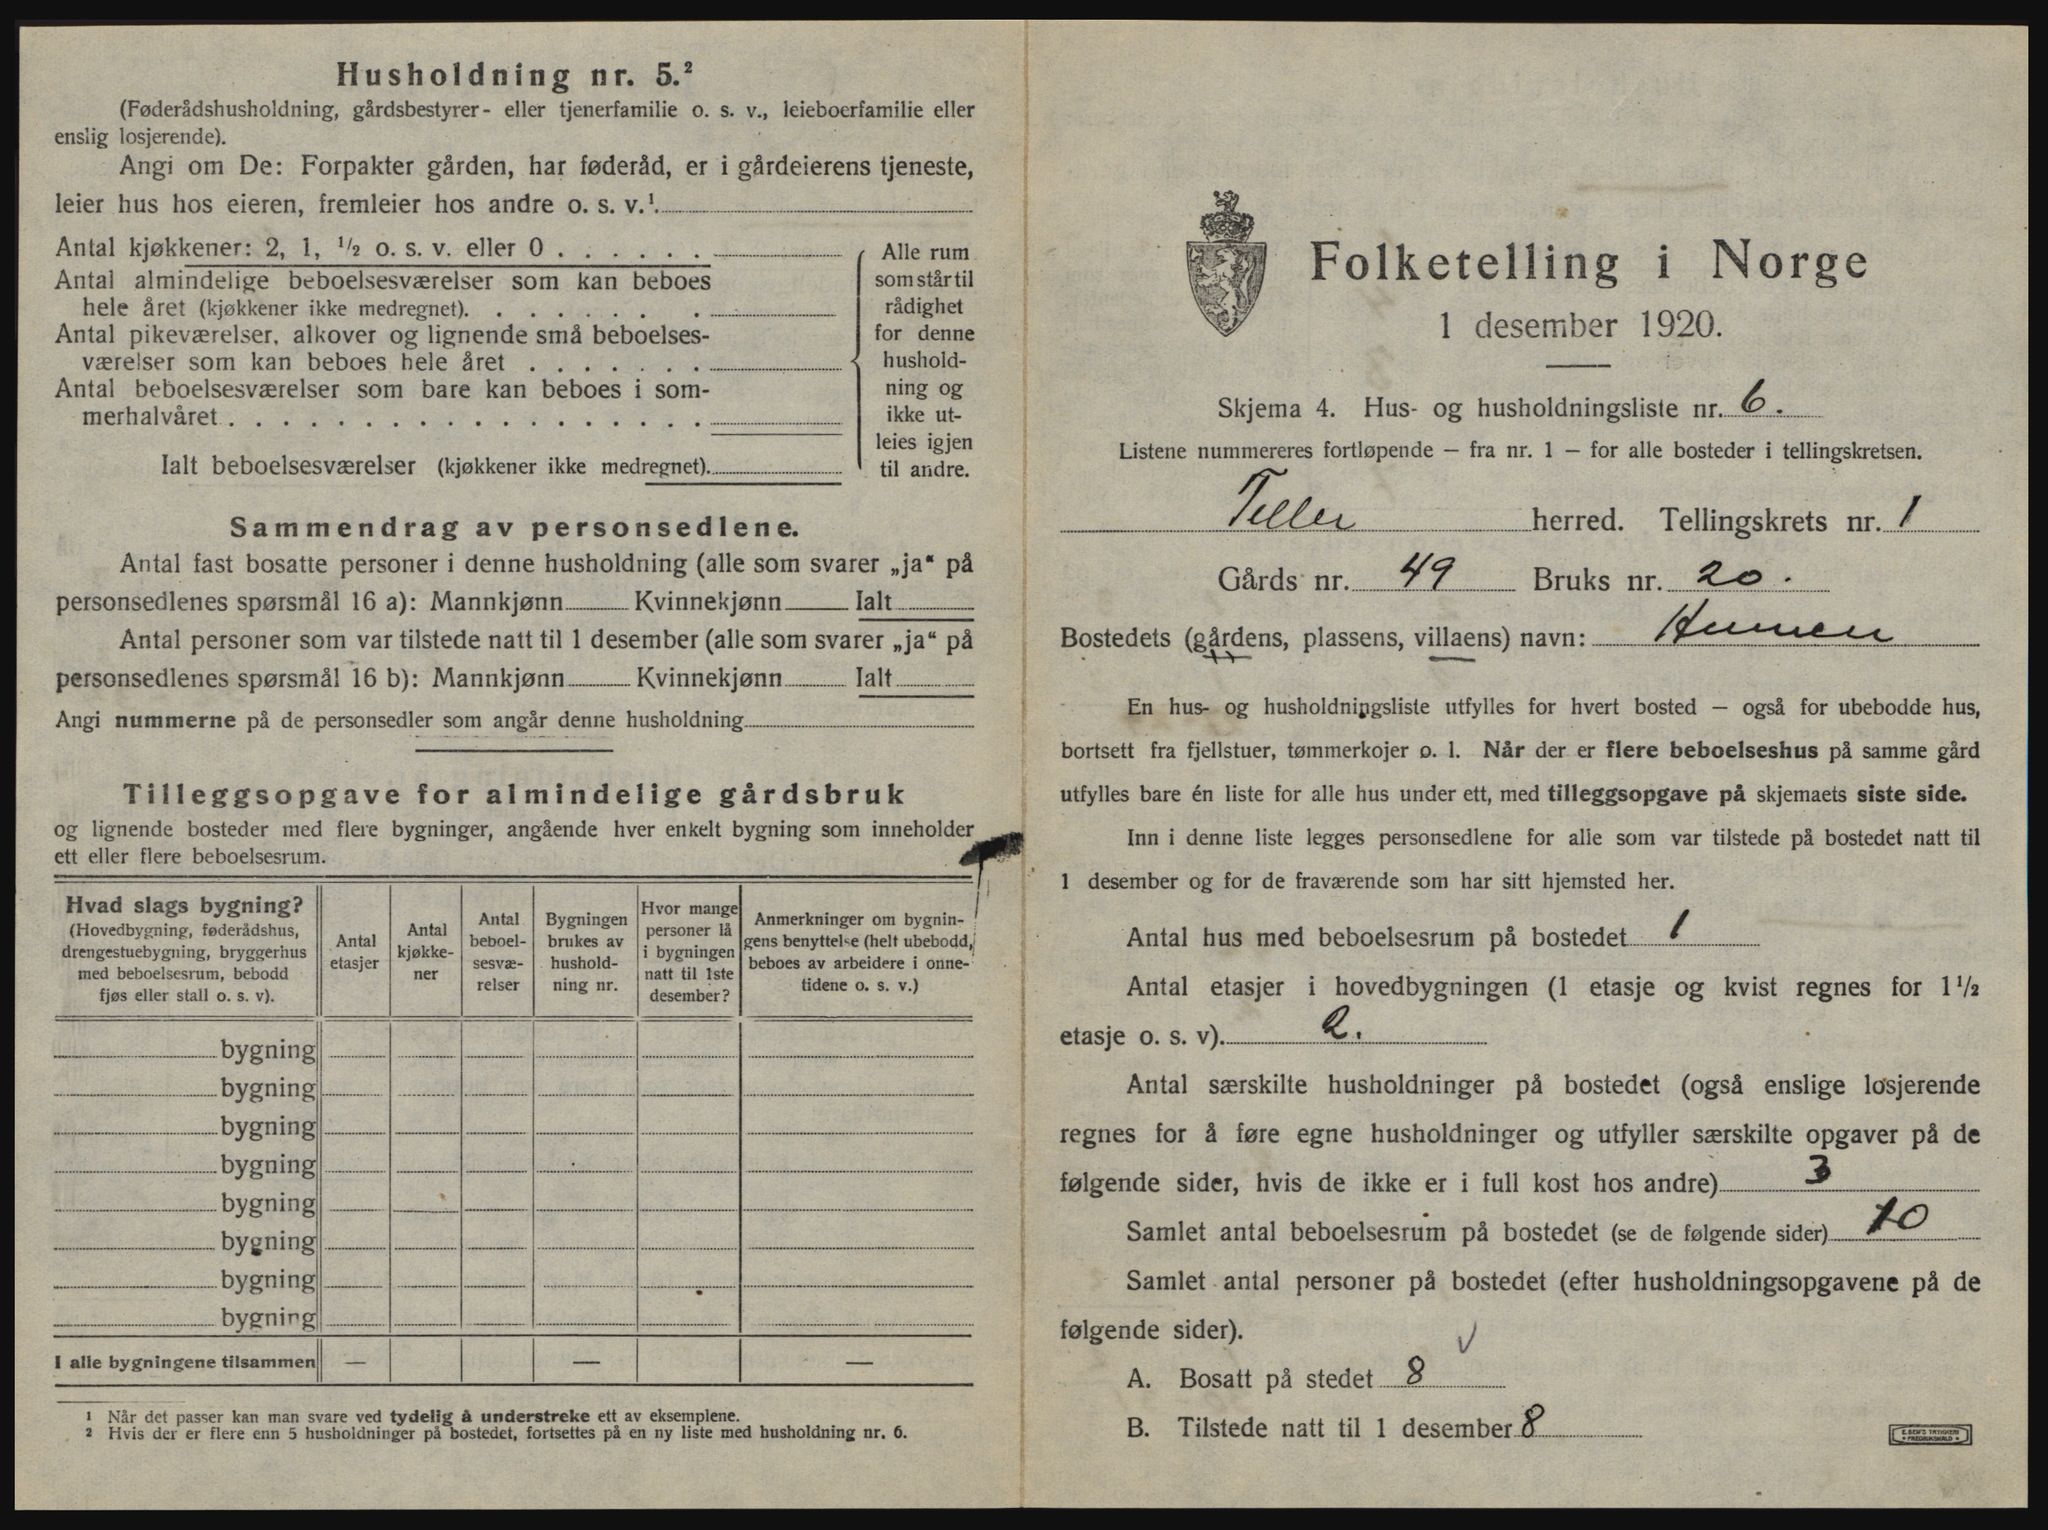 Husholdning nr. 5.²
(Føderådshusholdning, gårdsbestyrer- eller tjenerfamilie o. s. v., leieboerfamilie eller
enslig losjerende).
Angi om De: Forpakter gården, har føderåd, er i gårdeierens tjeneste,
leier hus hos eieren, fremleier hos andre o. s. v.¹.
Antal kjøkkener: 2, 1, ½ o. s. v. eller 0 . . . . . .
Antal almindelige beboelsesværelser som kan beboes
hele året (kjøkkener ikke medregnet). . . . . . . . .
Antal pikeværelser, alkover og lignende små beboelses-
værelser som kan beboes hele året . . . . . . .
Antal beboelsesværelser som bare kan beboes i som-
merhalvåret . . . . . . . . . . . . . . . . . .
Ialt beboelsesværelser (kjøkkener ikke medregnet).
Alle rum
som står til
rådighet
for denne
hushold-
ning og
ikke ut-
leies igjen
til andre.
Sammendrag av personsedlene.
Antal fast bosatte personer i denne husholdning (alle som svarer „ja“ på
personsedlenes spørsmål 16 a): Mannkjønn Kvinnekjønn Ialt
Antal personer som var tilstede natt til 1 desember (alle som svarer „ja“ på
personsedlenes spørsmål 16 b): Mannkjønn Kvinnekjønn Ialt
Angi nummerne på de personsedler som angår denne husholdning
Tilleggsopgave for almindelige gårdsbruk
og lignende bosteder med flere bygninger, angående hver enkelt bygning som inneholder
ett eller flere beboelsesrum.
Hvad slags bygning?
(Hovedbygning, føderådshus,
drengestuebygning, bryggerhus
med beboelsesrum, bebodd
fjøs eller stall o. s. v).
Antal
etasjer
Antal
kjøkke-
ner
Antal
beboel-
sesvæ-
relser
Bygningen
brukes av
hushold-
ning nr.
Hvor mange
personer lå
i bygningen
natt til 1ste
desember?
Anmerkninger om bygnin-
gens benyttelse (helt ubebodd,
beboes av arbeidere i onne-
tidene o. s. v.)
bygning
bygning
bygning
bygning
bygning
bygning
bygning
bygning
I alle bygningene tilsammen — — —
¹ Når det passer kan man svare ved tydelig å understreke ett av eksemplene.
² Hvis der er flere enn 5 husholdninger på bostedet, fortsettes på en ny liste med husholdning nr. 6.
Folketelling i Norge
1 desember 1920.
Skjema 4. Hus- og husholdningsliste nr. 6.
Listene nummereres fortløpende – fra nr. 1 – for alle bosteder i tellingskretsen.
Teller herred. Tellingskrets nr. 1
Gårds nr. 49 Bruks nr. 20.
Bostedets (gårdens, plassens, villaens) navn:
En hus- og husholdningsliste utfylles for hvert bosted – også for ubebodde hus,
bortsett fra fjellstuer, tømmerkojer o. l. Når der er flere beboelseshus på samme gård
utfylles bare én liste for alle hus under ett, med tilleggsopgave på skjemaets siste side.
Inn i denne liste legges personsedlene for alle som var tilstede på bostedet natt til
1 desember og for de fraværende som har sitt hjemsted her.
Antal hus med beboelsesrum på bostedet 1
Antal etasjer i hovedbygningen (1 etasje og kvist regnes for 1½
etasje o. s. v). 2.
Antal særskilte husholdninger på bostedet (også enslige losjerende
regnes for å føre egne husholdninger og utfyller særskilte opgaver på de
følgende sider, hvis de ikke er i full kost hos andre) 3
Samlet antal beboelsesrum på bostedet (se de følgende sider) 10
Samlet antal personer på bostedet (efter husholdningsopgavene på de
følgende sider).
A. Bosatt på stedet 8
B. Tilstede natt til 1 desember 8